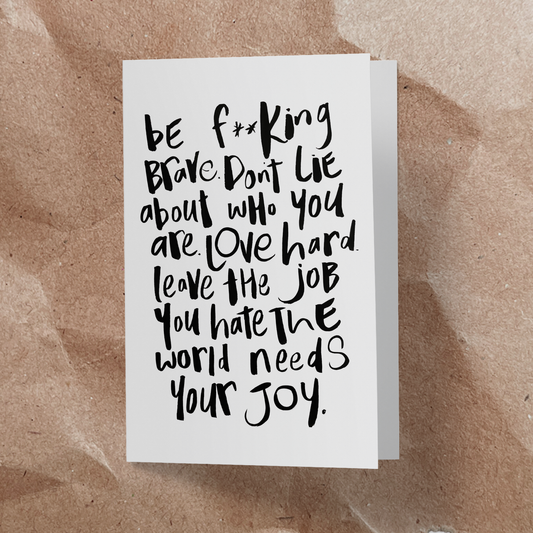 bE f**King
BRave. Don't LiE
about wHo you
are. LOVE hard.
leave tHe joB
you hate THE
world needS
Your JOY.